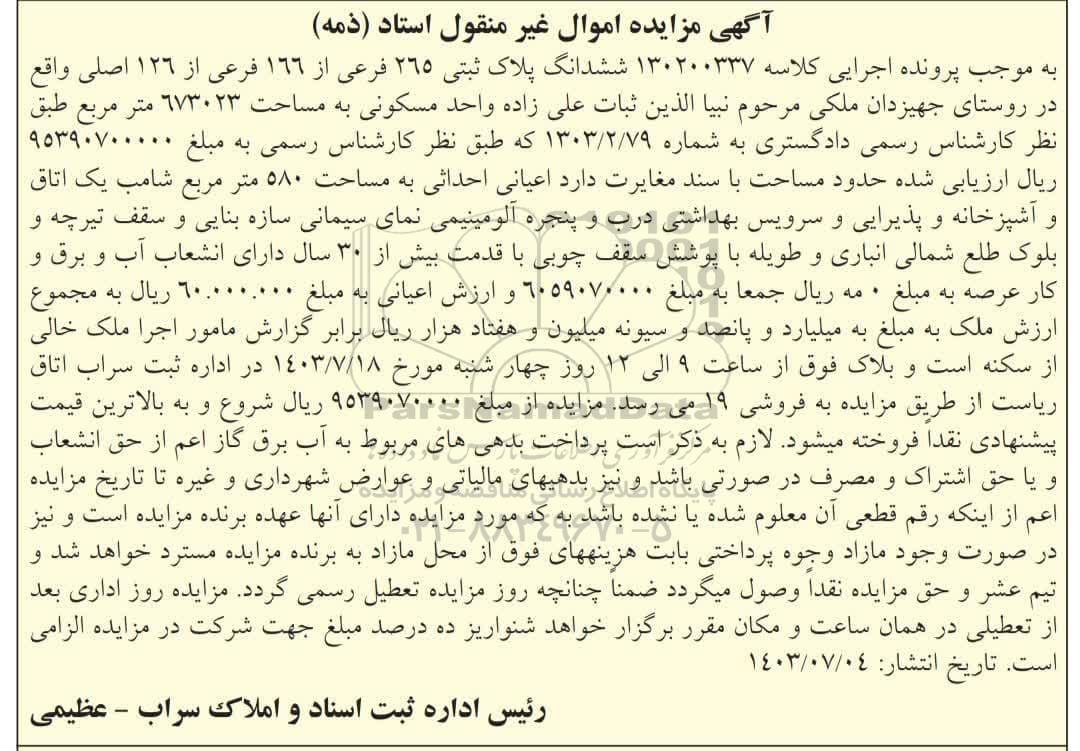 آگهی مزایده اموال غیر منقول استاد (ذمه)
به موجب پرونده اجرایی کلاسه ۱۳۰۲۰۰۳۳۷ ششدانگ پلاک ثبتی ۲٦٥ فرعی از ۱٦٦ فرعی از ۱۲٦ اصلی واقع
در روستای جهیزدان ملکی مرحوم نبیا الذین ثبات علی زاده واحد مسکونی به مساحت ٦۷۳۰۲۳ متر مربع طبق
نظر کارشناس رسمی دادگستری به شماره ۱۳۰۳/۲/۷۹ که طبق نظر کارشناس رسمی به مبلغ ۹٥۳۹۰۷۰۰۰۰۰
ریال ارزیابی شده حدود مساحت با سند مغایرت دارد اعیانی احداثی به مساحت ٥۸۰ متر مربع شامب یک اتاق
و آشپزخانه و پذیرایی و سرویس بهداشتی درب و پنجره آلومینیمی نمای سیمانی سازه بنایی و سقف تیرچه و
بلوک طلع شمالی انباری و طویله با پوشش سقف چوبی با قدمت بیش از ۳۰ سال دارای انشعاب آب و برق و
کار عرصه به مبلغ ۰ مه ریال جمعا به مبلغ ٦۰٥۹۰۷۰۰۰۰ و ارزش اعیانی به مبلغ ٦۰.۰۰۰.۰۰۰ ریال به مجموع
ارزش ملک به مبلغ به میلیارد و پانصد و سیونه میلیون و هفتاد هزار ریال برابر گزارش مامور اجرا ملک خالی
از سکنه است و بلاک فوق از ساعت ۹ الی ۱۲ روز چهار شنبه مورخ ۱٤۰۳/۷/۱۸ در اداره ثبت سراب اتاق
ریاست از طریق مزایده به فروشی ۱۹ می رسد. مزایده از مبلغ ۹٥۳۹۰۷۰۰۰۰ ریال شروع و به بالاترین قیمت
پیشنهادی نقداً فروخته میشود. لازم به ذکر است پرداخت بدهی های مربوط به آب برق گاز اعم از حق انشعاب
و یا حق اشتراک و مصرف در صورتی باشد و نیز بدهیهای مالیاتی و عوارض شهرداری و غیره تا تاریخ مزایده
اعم از اینکه رقم قطعی آن معلوم شده یا نشده باشد به که مورد مزایده دارای آنها عهده برنده مزایده است و نیز
در صورت وجود مازاد وجوه پرداختی بابت هزینههای فوق از محل مازاد به برنده مزایده مسترد خواهد شد و
تیم عشر و حق مزایده نقداً وصول میگردد ضمناً چنانچه روز مزایده تعطیل رسمی گردد. مزایده روز اداری بعد
از تعطیلی در همان ساعت و مکان مقرر برگزار خواهد شنواریز ده درصد مبلغ جهت شرکت در مزایده الزامی
است. تاریخ انتشار: ۱٤۰۳/۰۷/۰٤
رئیس اداره ثبت اسناد و املاک سراب - عظیمی
ParsNamadData
پایگاه اطلاع رسانی مناقصه و مزایده
۰۲۱-۸۸۳٤۹٦۷۰-٥